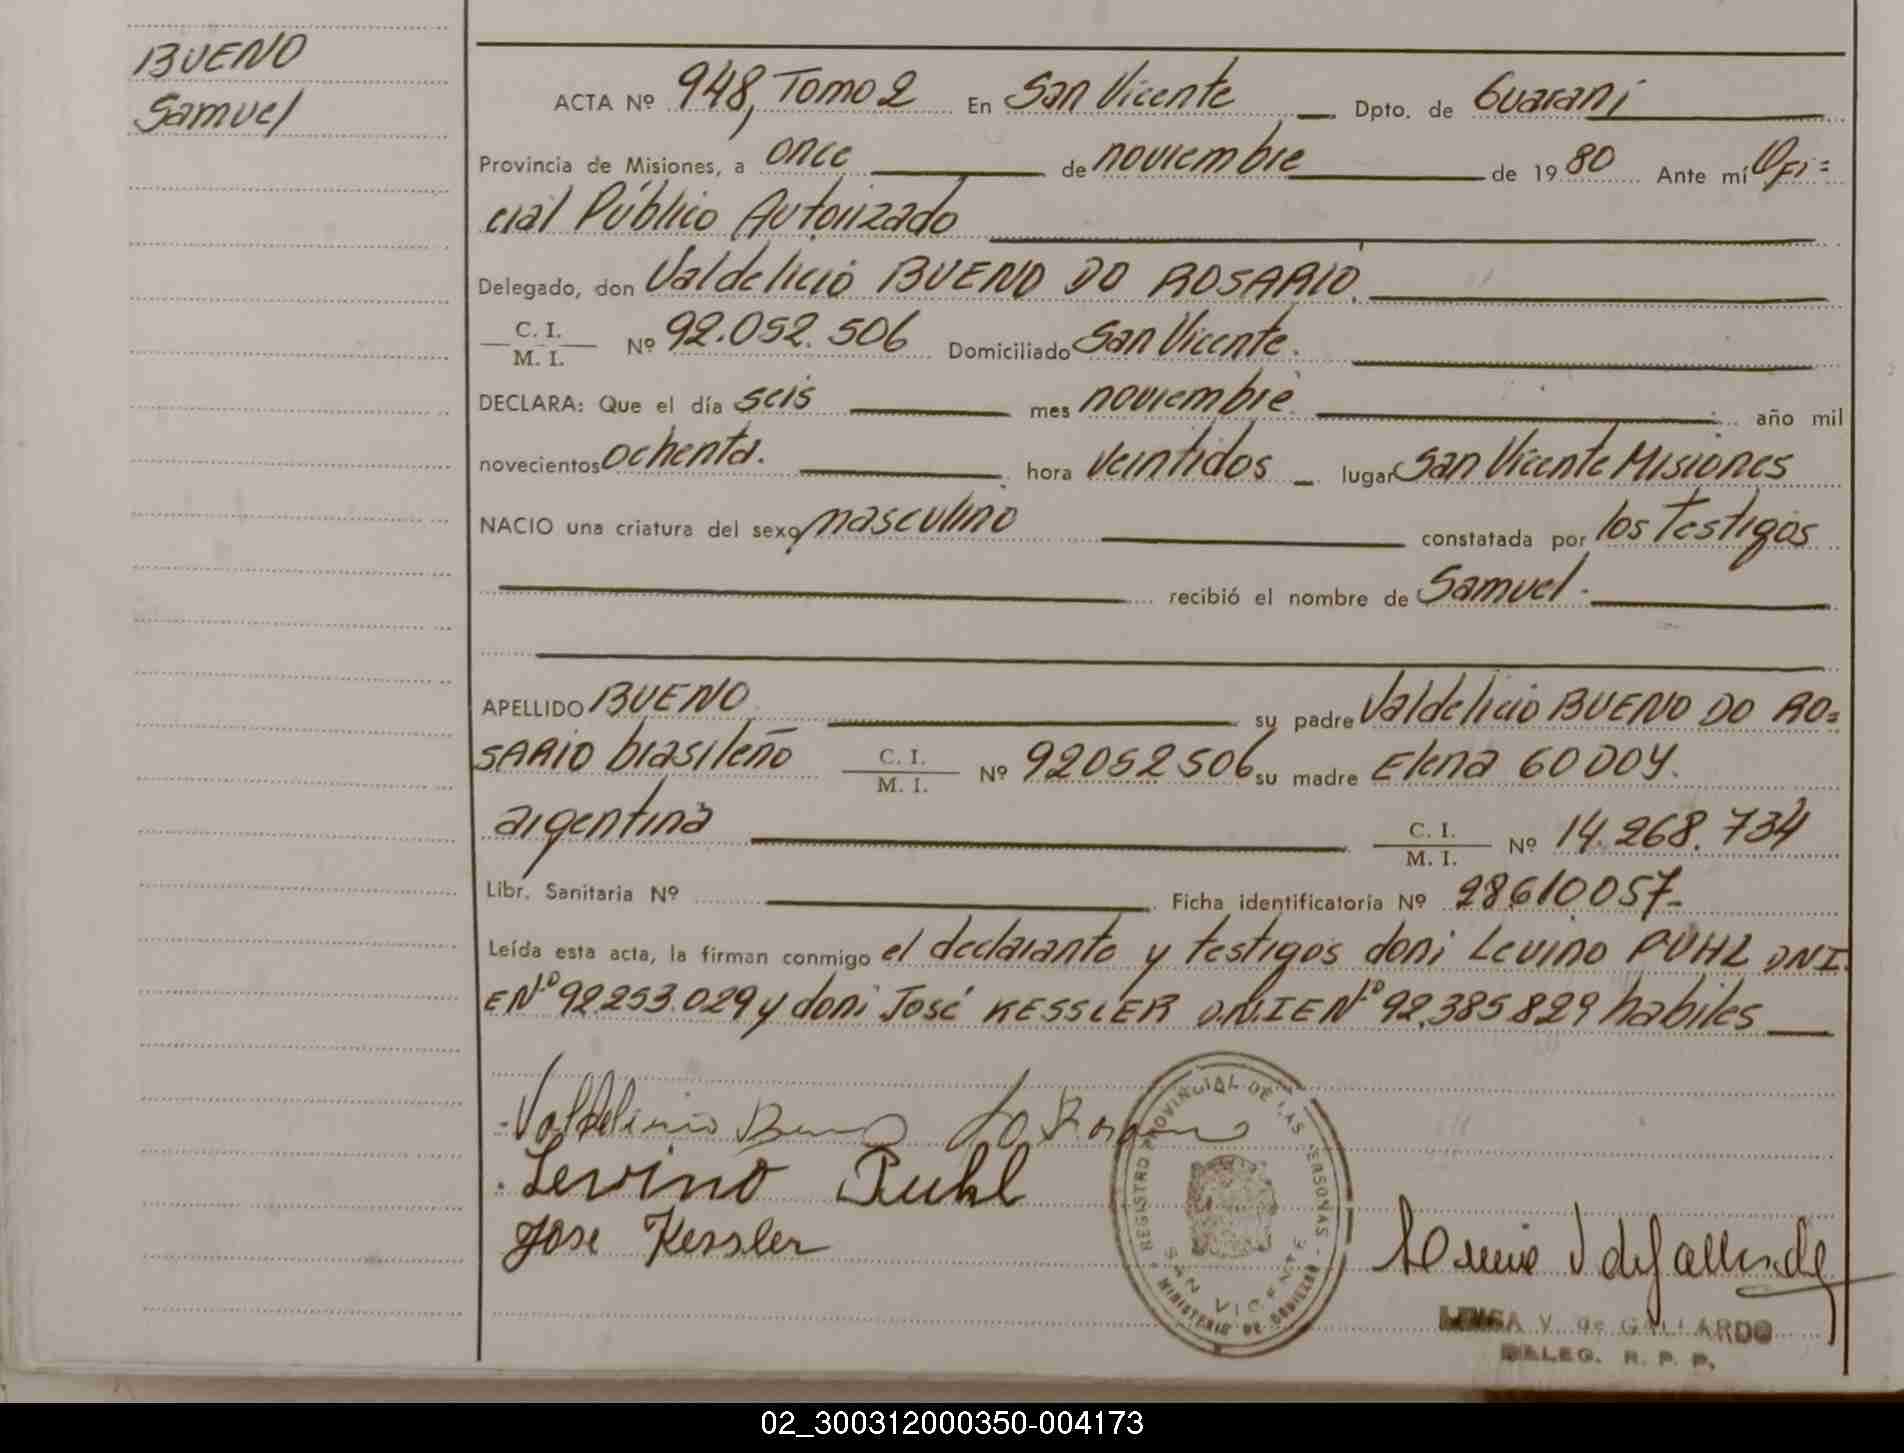 BUENO
Samuel
ACTA Nº 948, Tomo 2 En San Vicente Dpto. de Guaraní
Provincia de Misiones, a once de noviembre de 1980 Ante mí Ofi=
cial Público Autorizado
Delegado, don Valdelicio BUENO DO ROSARIO.
C. I.
M. I. Nº 92.052.506 Domiciliado San Vicente.
DECLARA: Que el día seis mes noviembre año mil
novecientos ochenta. hora veintidos lugar San Vicente Misiones
NACIO una criatura del sexo masculino constatada por los testigos
recibió el nombre de Samuel.
APELLIDO BUENO su padre Valdelicio BUENO DO RO=
SARIO brasileño C. I. M. I. Nº 92052506 su madre Elena GODOY.
argentina C. I. M. I. Nº 14.268.734
Libr. Sanitaria Nº Ficha identificatoria Nº 28610057-
Leída esta acta, la firman conmigo el declarante y testigos doni Levino PUHL DNI.
E Nº 92.253.029 y doni José KESSLER D.N.I E Nº 92.385829 habiles
Valdelicio Bueno do Rosario
Levino Puhl
Jose Kessler
REGISTRO PROVINCIAL DE LAS PERSONAS
SAN VICENTE
MINISTERIO DE GOBIERNO
V. de GALLARDO
DELEG. R. P. P.
02_300312000350-004173